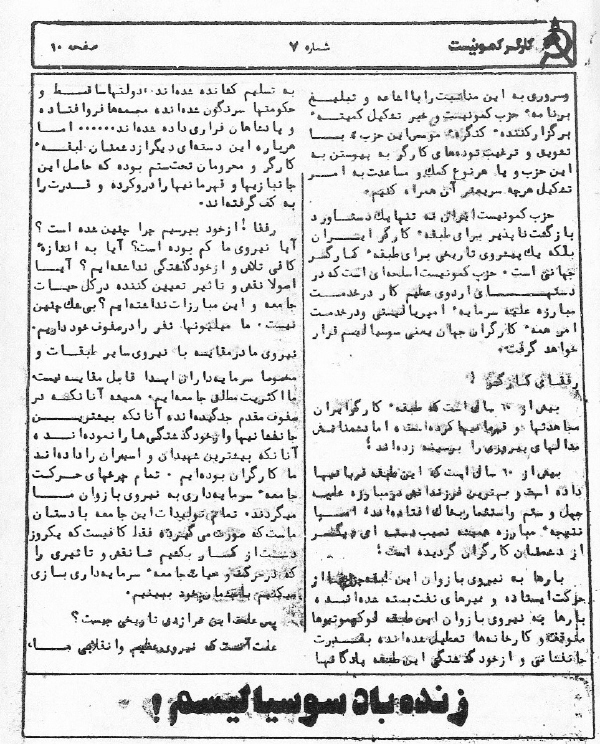 کارگر کمونیست
شماره ۷
صفحه ۱۰
وسروری به این مناسبت را با اشاعه و تبلیغ
برنامه حزب کمونیست و خبر تشکیل کمیته
برگزارکننده کنگره موسس این حزب با
تشویق و ترغیب توده‌های کارگر به پیوستن به
این حزب و یا هرنوع کمک و مساعدت به امر
تشکیل هرچه سریعتر آن همراه کنیم.
حزب کمونیست ایران نه تنها یک دستاورد
بازگشت ناپذیر برای طبقه کارگر ایران
بلکه یک پیروی تاریخی برای طبقه کارگر
جهانی است. حزب کمونیست اسلحه‌ای است که در
دستهای اردوی عظیم کار درخدمت
مبارزه علیه سرمایه امپریالیستی ودرخدمت
امر همه کارگران جهان یعنی سوسیالیسم قرار
خواهد گرفت.
رفقای کارگر!
بیش از ۶۰ سال است که طبقه کارگر ایران
مجاهدتها و قهرمانیها کرده است اما دشمنانش
مدالهای پیروزی را برسینه زده‌اند!
بیش از ۶۰ سال است که این طبقه قربانیها
داده است و بهترین فرزندانش در مبارزه علیه
جهل و ستم و استثمار بخاک افتاده‌اند اما
نتیجه مبارزه همیشه نصیب دسته‌ای دیگر
از دشمنان کارگران گردیده است!
بارها به نیروی بازوان این طبقه چرخها از
حرکت ایستاده و شیرهای نفت بسته شده‌اند
بارها به نیروی بازوان این طبقه لوکوموتیوها
متوقف و کارخانه‌ها تعطیل شده‌اند به قدرت
جانفشانی و ازخودگذشتگی این طبقه پادگانها
به تسلیم کشانده شده‌اند. دولتها ساقط و
حکومتها سرنگون شده‌اند مجسمه‌ها فروافتاده
و پادشاهان فراری داده شده‌اند...... اما
هرباره این دسته‌ای دیگر از دشمنان طبقه
کارگر و محرومان تحت ستم بوده که حاصل این
جانبازیها و قهرمانیها را دروکرده و قدرت را
به کف گرفته‌اند.
رفقا! ازخود بپرسیم چرا چنین شده است؟
آیا نیروی ما کم بوده است؟ آیا به اندازه
کافی تلاش و ازخودگذشتگی نداشته‌ایم؟ آیا
اصولا نقش و تاثیر تعیین کننده درکل حیات
جامعه و این مبارزات نداشته‌ایم؟ بی‌شک چنین
نیست. ما میلیونها نفر را درصفوف خود داریم.
نیروی ما درمقایسه با نیروی سایر طبقات و
خصوصا سرمایه‌داران ابدا قابل مقایسه نیست
ما اکثریت مطلق جامعه‌ایم. همیشه آنانکه در
صفوف مقدم جنگیده‌اند آنانکه بیشترین
جانفشانیها و ازخودگذشتگی‌ها را نموده‌اند
آنانکه بیشترین شهیدان و اسیران را داده‌اند
ما کارگران بوده‌ایم. تمام چرخهای حرکت
جامعه سرمایه‌داری به نیروی بازوان ما
میگردند. تمام تولیدات این جامعه با دستان
ماست که صورت می‌گیرد. فقط کافیست که یکروز
دست از کار بکشیم تا نقش و تاثیری را
که درحرکت و حیات جامعه سرمایه‌داری بازی
میکنیم با چشمان خود ببینیم.
پس علت این تراژدی تاریخی چیست؟
علت آنست که نیروی عظیم و انقلابی ما،
زنده باد سوسیالیسم!